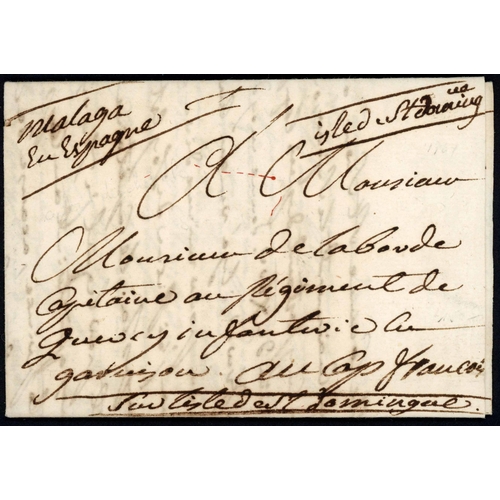 Malaga
En Espagne
isle de St domingue
A Monsieur
Monsieur de laborde
Capitaine au Régiment de
Quercy infanterie en
garnison. au Cap françois
sur l'isle de st domingue.